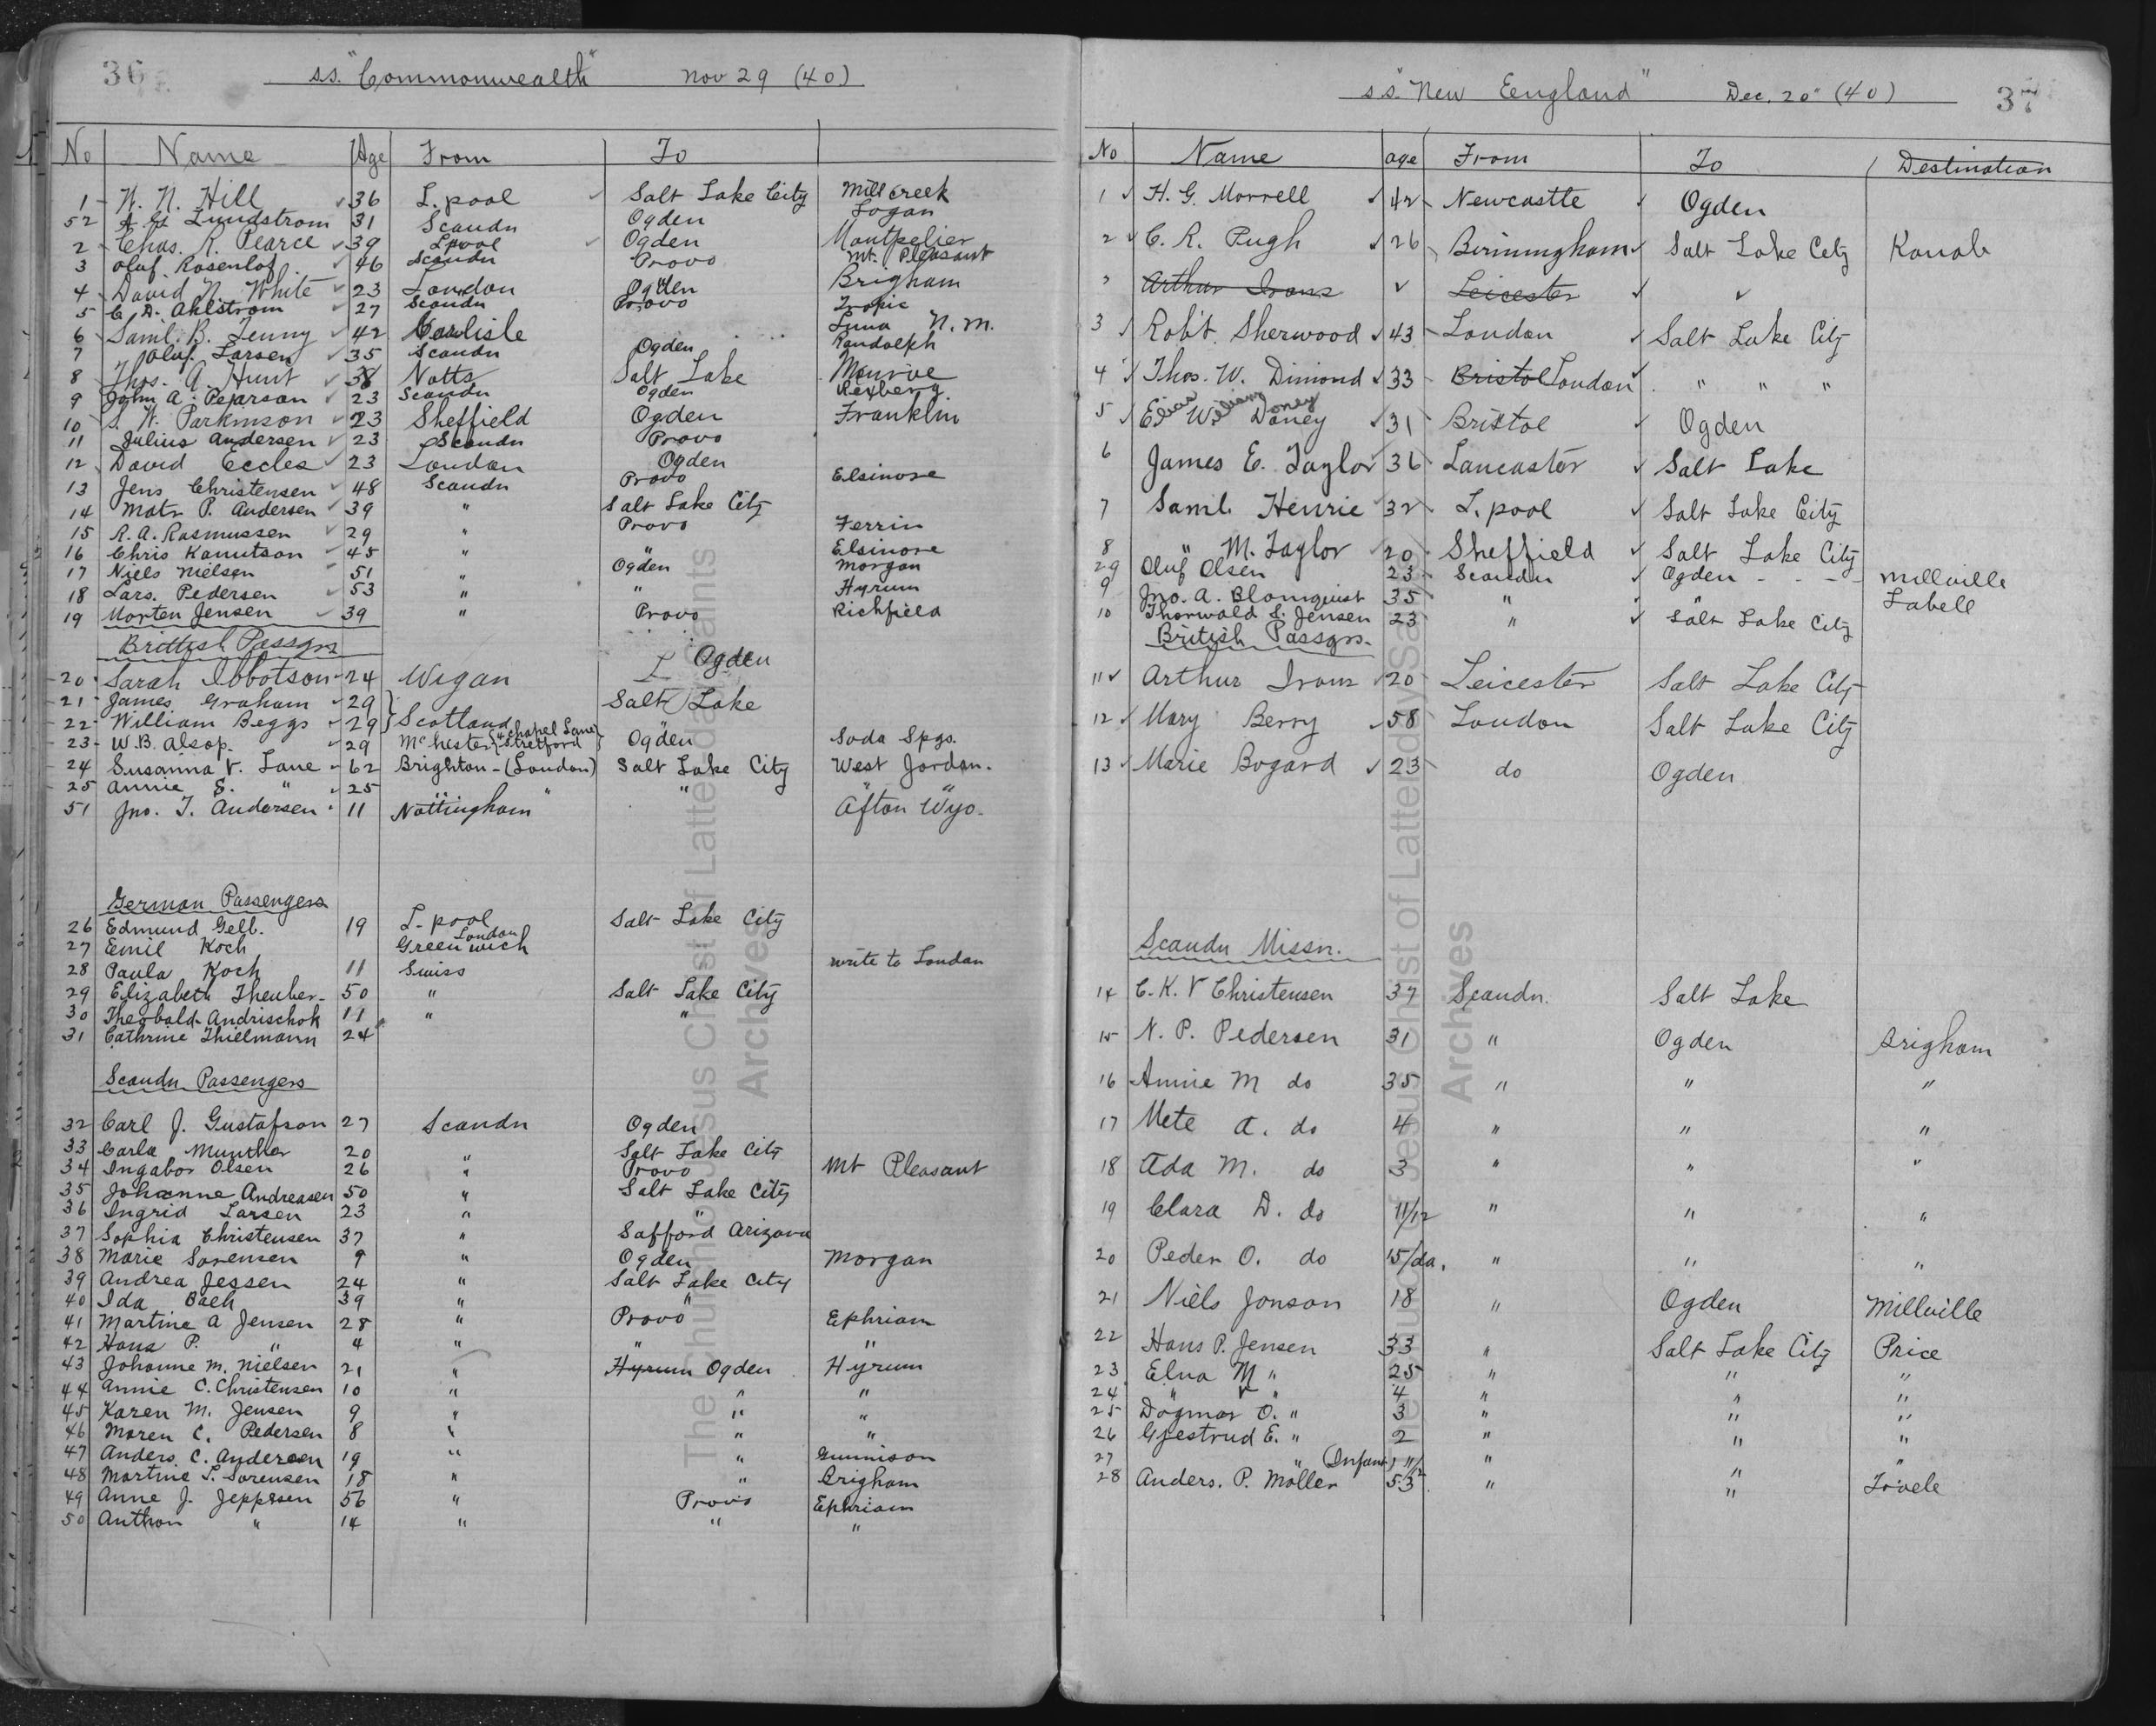 36
s.s. "Commonwealth" Nov 29 (40)
No Name Age From To
1 36 L.pool Salt Lake City Mill creek
52 Lundstrom 31 Scandn Ogden Logan
2 Chas. R. Pearce 39 Lpool Ogden Montpelier
3 Oluf Rosenlof 46 Scandn Provo Mt. Pleasant
4 David N. White 23 London Ogden Brigham
5 C. A. Ahlstrom 27 Scandn Provo Tropic
6 Saml. B. Tenny 42 Carlisle Luna N.M.
7 Oluf Larsen 35 Scandn Ogden Randolph
8 Thos. A. Hunt 38 Notts Salt Lake Monroe
9 John A. Pearson 23 Scandn Ogden Rexberg.
10 S. W. Parkinson 23 Sheffield Ogden Franklin
11 Julius Andersen 23 Scandn Provo
12 David Eccles 23 London Ogden
13 Jens Christensen 48 Scandn Provo Elsinore
14 Mats P. Andersen 39 " Salt Lake City
15 R. A. Rasmussen 29 " Provo Ferrin
16 Chris Kanutson 45 " " Elsinore
17 Niels Nielsen 51 " Ogden Morgan
18 Lars. Pedersen 53 " " Hyrum
19 Morten Jensen 39 " Provo Richfield
Brittish Passgrs
20 Sarah Ibbotson 24 Wigan Ogden
21 James Graham 29 } Salt Lake
22 William Beggs 29 } Scotland
23 W.B. Alsop. 29 McHester { 4 Chapel Lane Stretford } Ogden Soda Spgs.
24 Susanna V. Lane 62 Brighton - (London) Salt Lake City West Jordan.
25 Annie E. " 25 " " " "
51 Jno. T. Andersen 11 Nottingham Afton Wyo.
German Passengers
26 Edmund Gelb. 19 L-pool Salt Lake City
27 Emil Koch London Greenwich
28 Paula Koch 11 Swiss write to London
29 Elizabeth Theuber 50 " Salt Lake City
30 Theobald Andrischok 11 " "
31 Cathrine Thielmann 24
Scandn Passengers
32 Carl J. Gustafson 27 Scandn Ogden
33 Carla Munther 20 " Salt Lake City
34 Ingabor Olsen 26 " Provo Mt Pleasant
35 Johanne Andreasen 50 " Salt Lake City
36 Ingrid Larsen 23 " "
37 Sophia Christensen 37 " Safford Arizona
38 Marie Sorensen 9 " Ogden Morgan
39 Andrea Jessen 24 " Salt Lake City
40 Ida Bach 39 " "
41 Martine A Jensen 28 " Provo Ephriam
42 Hans P. " 4 " " "
43 Johanne M. Nielsen 21 " Hyrum Ogden Hyrum
44 Annie C. Christensen 10 " " "
45 Karen M. Jensen 9 " " "
46 Maren C. Pedersen 8 " " "
47 Anders C. Andersen 19 " " Gunnison
48 Martine S. Sorensen 18 " " Brigham
49 Anne J. Jeppesen 56 " Provo Ephriam
50 Anthon " 14 " " "
s.s. "New Eengland" Dec. 20" (40)
37
No Name age From To Destination
1 H. G. Morrell 42 Newcastle Ogden
2 C. R. Pugh 26 Birmingham Salt Lake City Kanab
Arthur Irons Leicester
3 Rob't. Sherwood 43 London Salt Lake City
4 Thos. W. Dimond 33 Bristol London " " "
Elias William Doney
5 Doney 31 Bristol Ogden
6 James E. Taylor 36 Lancaster Salt Lake
7 Saml. Henrie 32 L.pool Salt Lake City
8 " M. Taylor 20 Sheffield Salt Lake City
29 Oluf Olsen 23 Scandn Ogden Millville
9 Jno. A. Blomquist 35 " " Labell
10 Thorwald S. Jensen 23 " Salt Lake City
British Passgrs.
11 Arthur Irons 20 Leicester Salt Lake City
12 Mary Berry 58 London Salt Lake City
13 Marie Bogard 23 do Ogden
Scandn Missn.
14 C. K. V Christensen 37 Scandn. Salt Lake
15 N. P. Pedersen 31 " Ogden Brigham
16 Annie M do 35 " " "
17 Mete A. do 4 " " "
18 Ada M. do 3 " " "
19 Clara D. do 11/12 " " "
20 Peder O. do 15/da. " " "
21 Niels Jonson 18 " Ogden Millville
22 Hans P. Jensen 33 " Salt Lake City Price
23 Elna M " 25 " " "
24 " V " 4 " " "
25 Dagmar O. " 3 " " "
26 Gjestrud E. " 2 " " "
27 Infant " " "
28 Anders. P. Möller 53 " "
The Church of Jesus Christ of Latter-day Saints
Archives
The Church of Jesus Christ of Latter-day Saints
Archives